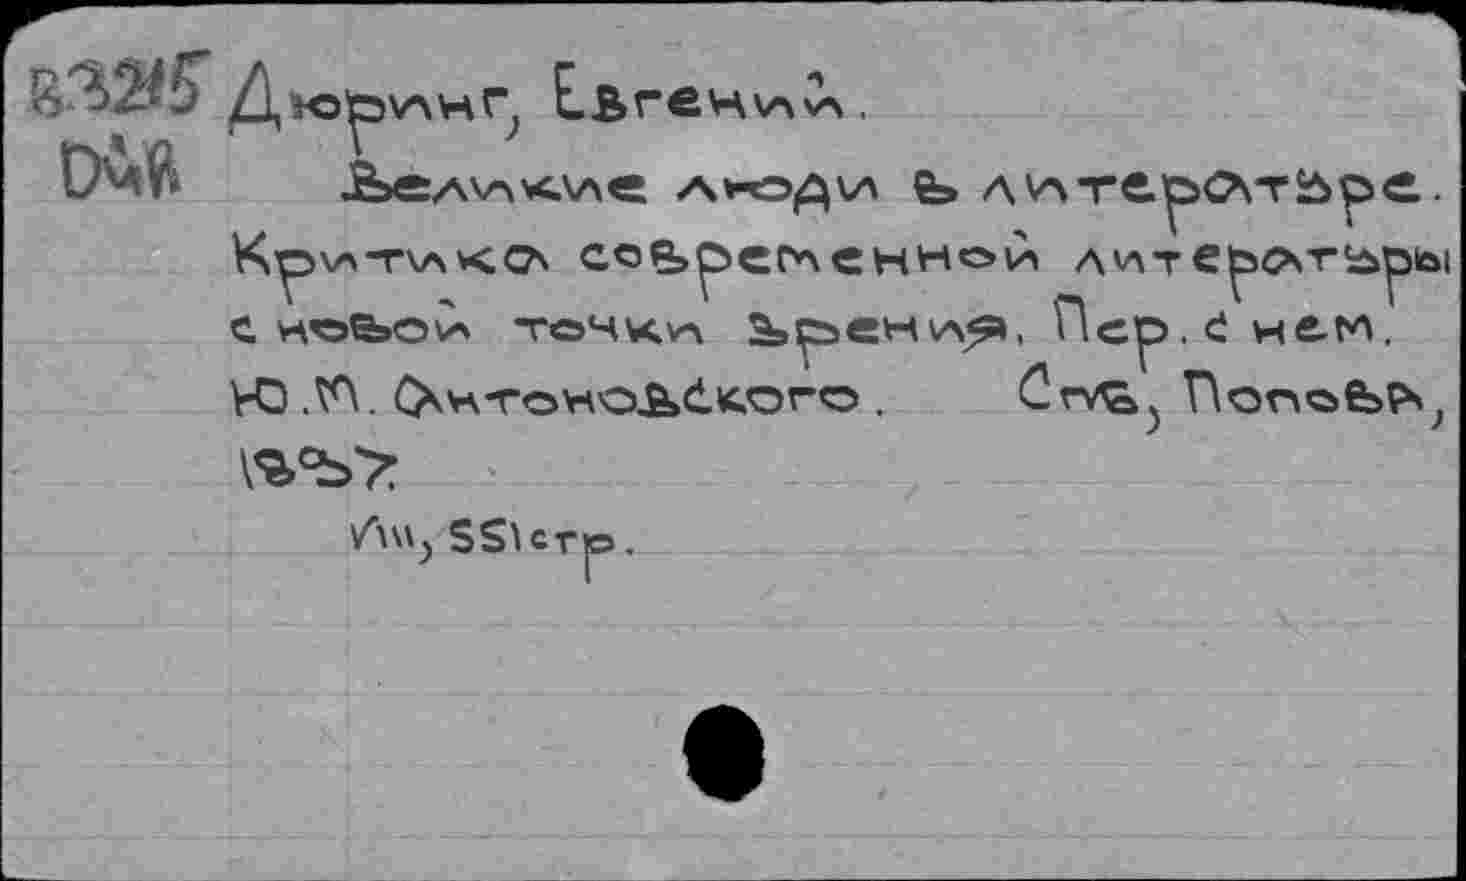 Дюринг, Евгений.
Великие люди в литературе.
Критика современной литературы
с новой точки зрения, Пер. с нем.
Ю.М. Антоновского. Спб, Попова,
1897.
III, 551 стр.